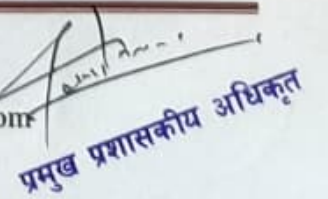 om
प्रमुख प्रशासकीय अधिकृत